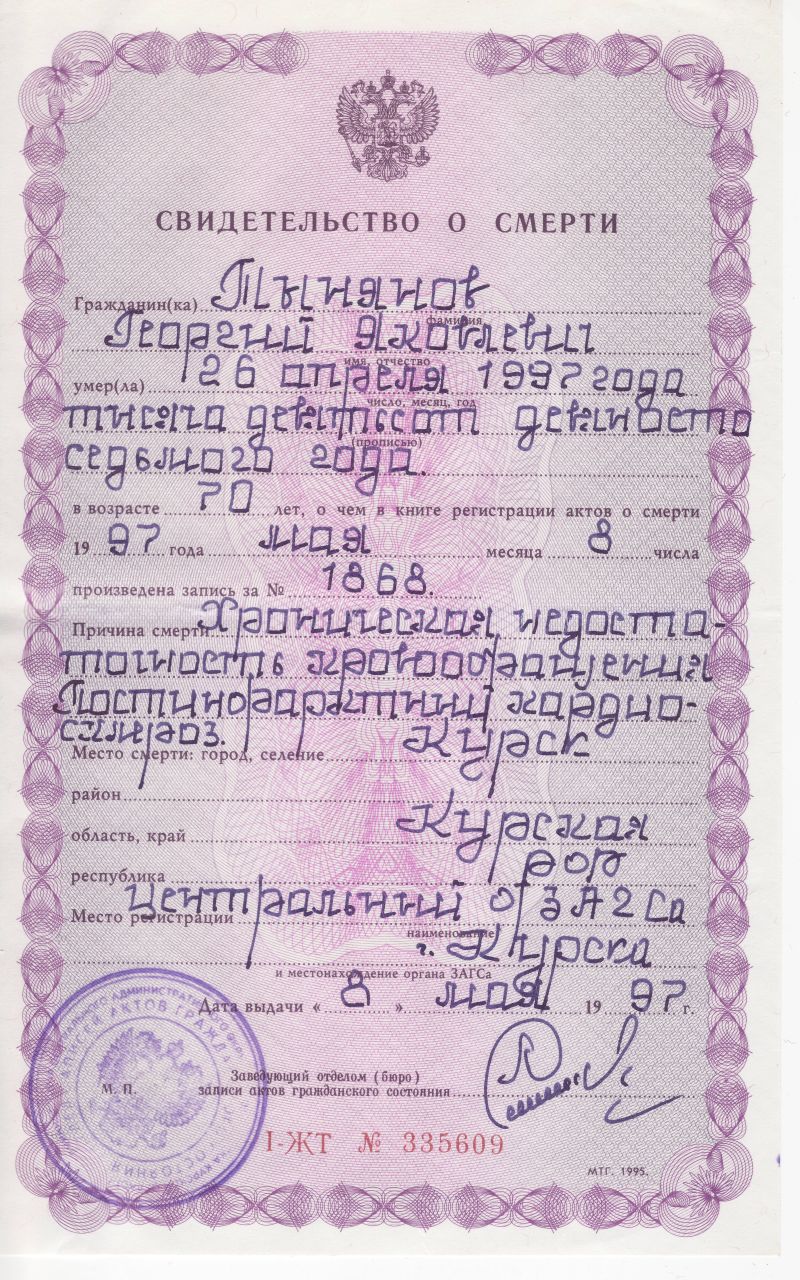 СВИДЕТЕЛЬСТВО О СМЕРТИ
Гражданин(ка) Тынянов
фамилия
Георгий Яковлевич
имя, отчество
умер(ла) 26 апреля 1997 года
число, месяц, год
тисяча девятьсот девяносто
(прописью)
седьмого года.
в возрасте 70 лет, о чем в книге регистрации актов о смерти
19 97 года мая месяца 8 числа
произведена запись за № 1868.
Причина смерти Хроническая недоста-
точность кровообращения
Постинфарктный кардио-
склероз.
Место смерти: город, селение Курск
район
область, край Курская
республика РФ
Место регистрации Центральный о/ЗАГСа
наименование
г. Курска
и местонахождение органа ЗАГСа
Дата выдачи « 8 » мая 19 97 г.
Заведующий отделом (бюро)
М. П. записи актов гражданского состояния
I-ЖТ № 335609
МТГ. 1995.